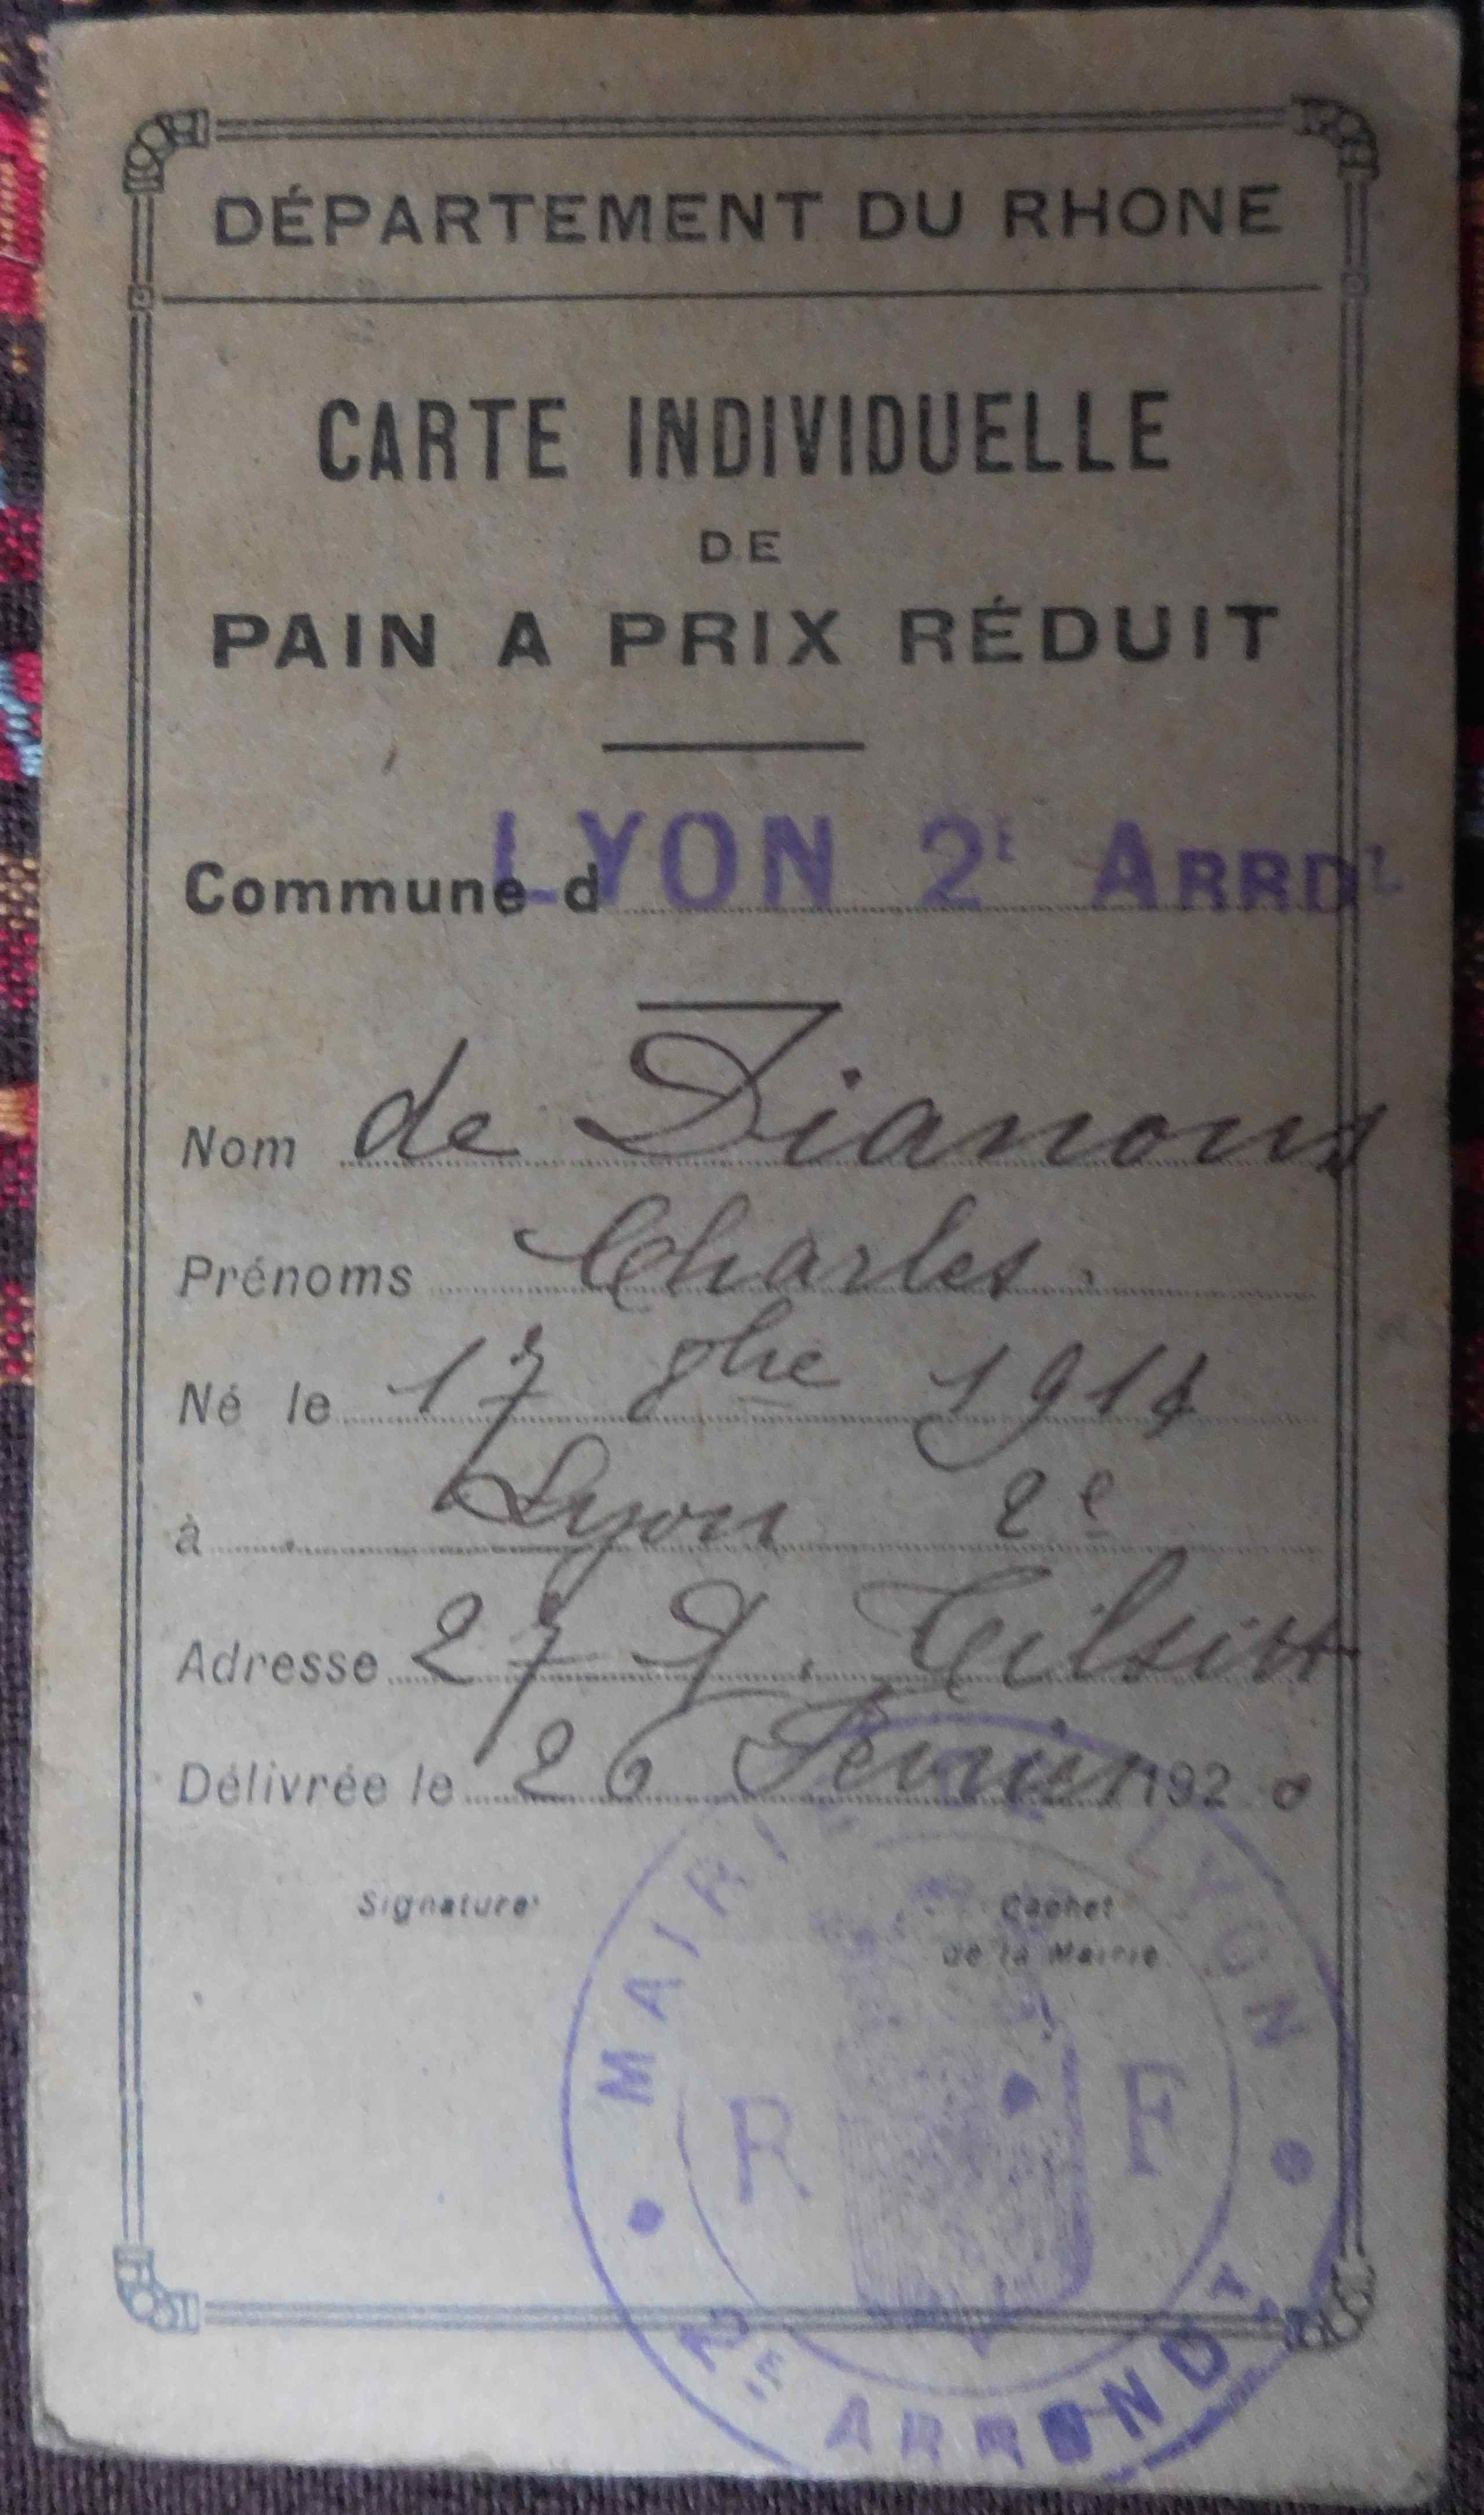 DÉPARTEMENT DU RHONE
CARTE INDIVIDUELLE
DE
PAIN A PRIX RÉDUIT
Commune d LYON 2E ARRDT
Nom de Dianous
Prénoms Charles.
Né le 17 8bre 1914
à Lyon 2e
Adresse 27 Q. Tilsitt
Délivrée le 26 Février 1920
Signature
Cachet
de la Mairie
MAIRIE DE LYON
R F
2E ARRONDT